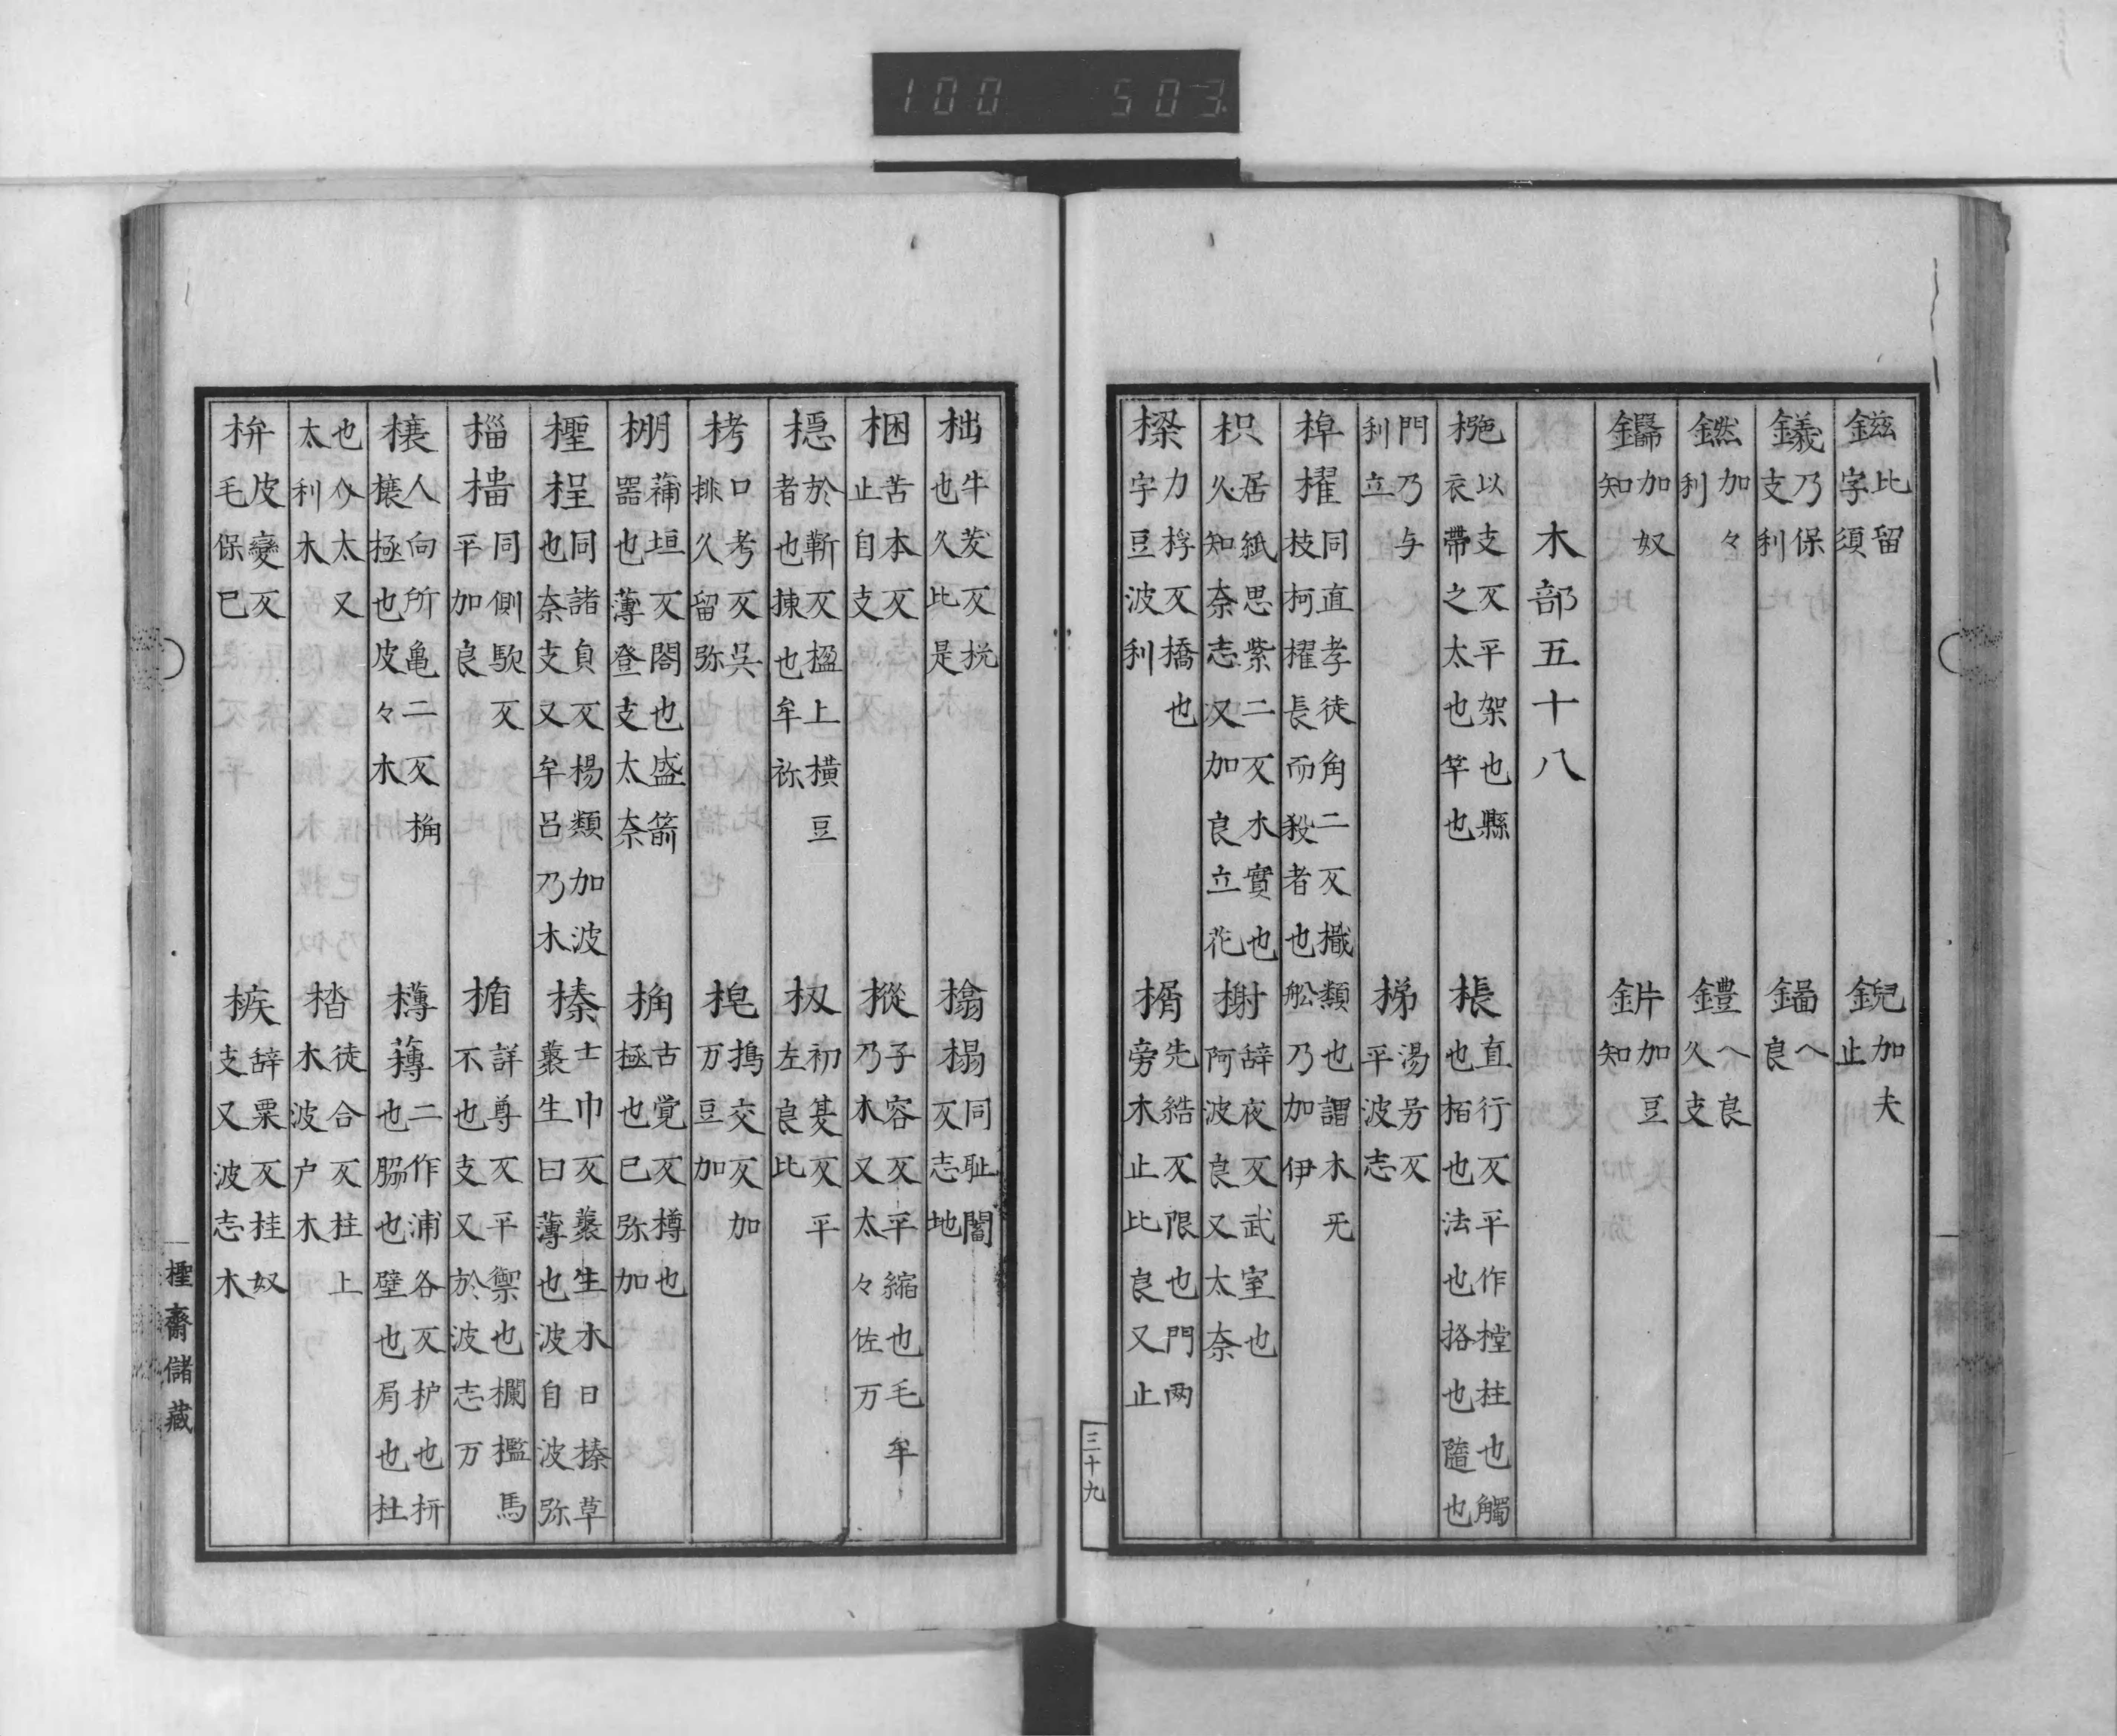 100 503
鎡 比留字須 鋧 加夫止
鑖 乃保支利 鍢 へ良
䥖 加々利 鑸 へ良久支
鑘 加奴知 鈝 加豆知
木部五十八
椸 以支反平架也縣衣帶之太也竿也 棖 直行反平作樘柱也觸也栢也法也挌也隨也
門乃与利立 梯 湯号反平波志
槕櫂 同直孝徒角二反檝類也謂木无枝柯櫂長而殺者也舩乃加伊
枳 居紙思紫二反木實也久知奈志又加良立花 榭 辞夜反武室也阿波良又太奈
樑 力桴反橋也字豆波利 楈 先結反限也門两旁木止比良又止
三十九
柮 牛芰反梲也久比是 榻榻 同耻闔反志地
梱 苦本反止自支 樅 子容反平縮也毛牟乃木又太々佐万
檼 於靳反楹上横豆者也揀也牟祢 极 初芟反平左良比
栲 口考反吳排久留弥 梍 搗交反加万豆加
棚 蒲垣反閣也盛箭器也薄登支太奈 桷 古覚反樽也極也已弥加
檉桯 同諸負反楊類加波也奈支又牟呂乃木 榛 士巾反藂生木曰榛草藂生曰薄也波自波弥
椔橲 同側駈反平加良 楯 詳尊反平禦也欄檻馬不也支又於波志万
檂 人向所亀二反桷欀極也皮々木 欂䕪 二作浦各反护也枅也脇也壁也肩也杜
也今太又太利木 楷 徒合反柱上木波户木
枅 皮變反毛保已 槉 辞粟反桂奴支又波志木
檉齋儲藏